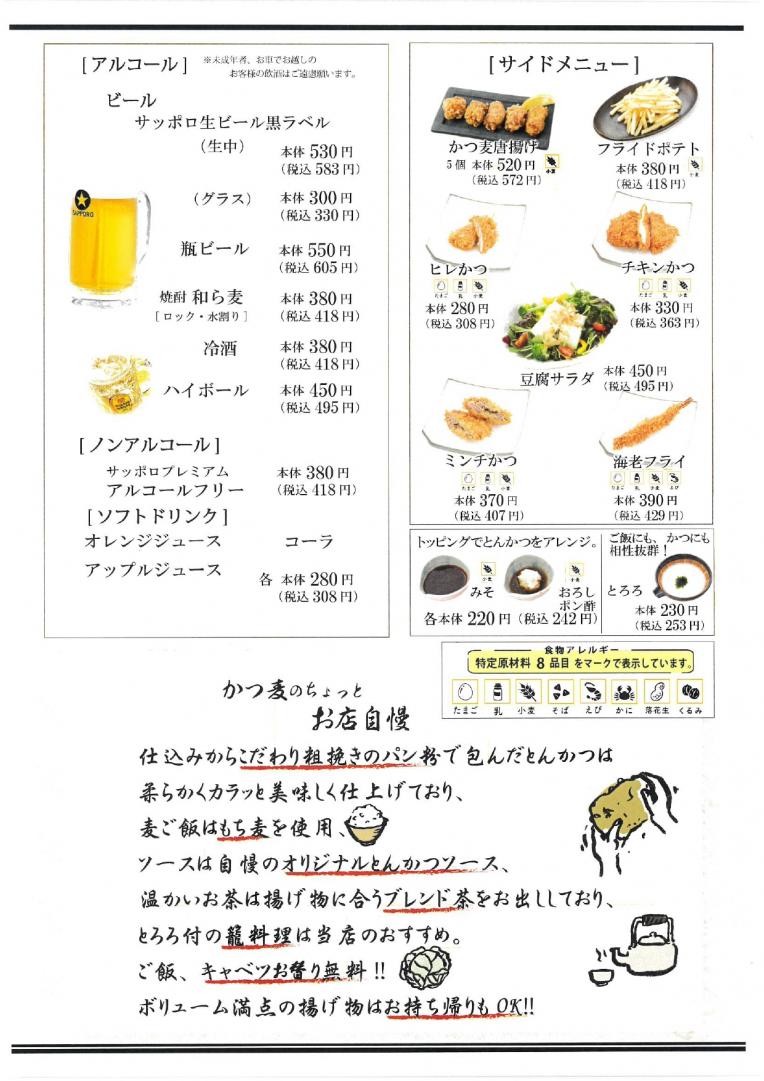 [アルコール]
※未成年者、お車でお越しの
お客様の飲酒はご遠慮願います。
ビール
サッポロ生ビール黒ラベル
(生中)
本体 530 円
(税込 583 円)
(グラス)
本体 300 円
(税込 330 円)
SAPPORO
瓶ビール
本体 550 円
(税込 605 円)
焼酎 和ら麦
[ロック・水割り]
本体 380 円
(税込 418 円)
冷酒
本体 380 円
(税込 418 円)
ハイボール
本体 450 円
(税込 495 円)
[ノンアルコール]
サッポロプレミアム
アルコールフリー
本体 380 円
(税込 418 円)
[ソフトドリンク]
オレンジジュース
コーラ
アップルジュース
各 本体 280 円
(税込 308 円)
[サイドメニュー]
かつ麦唐揚げ
5個 本体 520 円
(税込 572 円)
小麦
フライドポテト
本体 380 円
(税込 418 円)
小麦
ヒレかつ
たまご 乳 小麦
本体 280 円
(税込 308 円)
チキンかつ
たまご 乳 小麦
本体 330 円
(税込 363 円)
豆腐サラダ
本体 450 円
(税込 495 円)
ミンチかつ
たまご 乳 小麦
本体 370 円
(税込 407 円)
海老フライ
たまご 乳 小麦 えび
本体 390 円
(税込 429 円)
トッピングでとんかつをアレンジ。
小麦
みそ
小麦
おろし
ポン酢
各本体 220 円 (税込 242 円)
ご飯にも、かつにも
相性抜群!
とろろ
本体 230 円
(税込 253 円)
食物アレルギー
特定原材料 8 品目 をマークで表示しています。
たまご 乳 小麦 そば えび かに 落花生 くるみ
かつ麦のちょっと
お店自慢
仕込みからこだわり粗挽きのパン粉で包んだとんかつは
柔らかくカラッと美味しく仕上げており、
麦ご飯はもち麦を使用、
ソースは自慢のオリジナルとんかつソース、
温かいお茶は揚げ物に合うブレンド茶をお出ししており、
とろろ付の籠料理は当店のおすすめ。
ご飯、キャベツお替り無料!!
ボリューム満点の揚げ物はお持ち帰りもOK!!